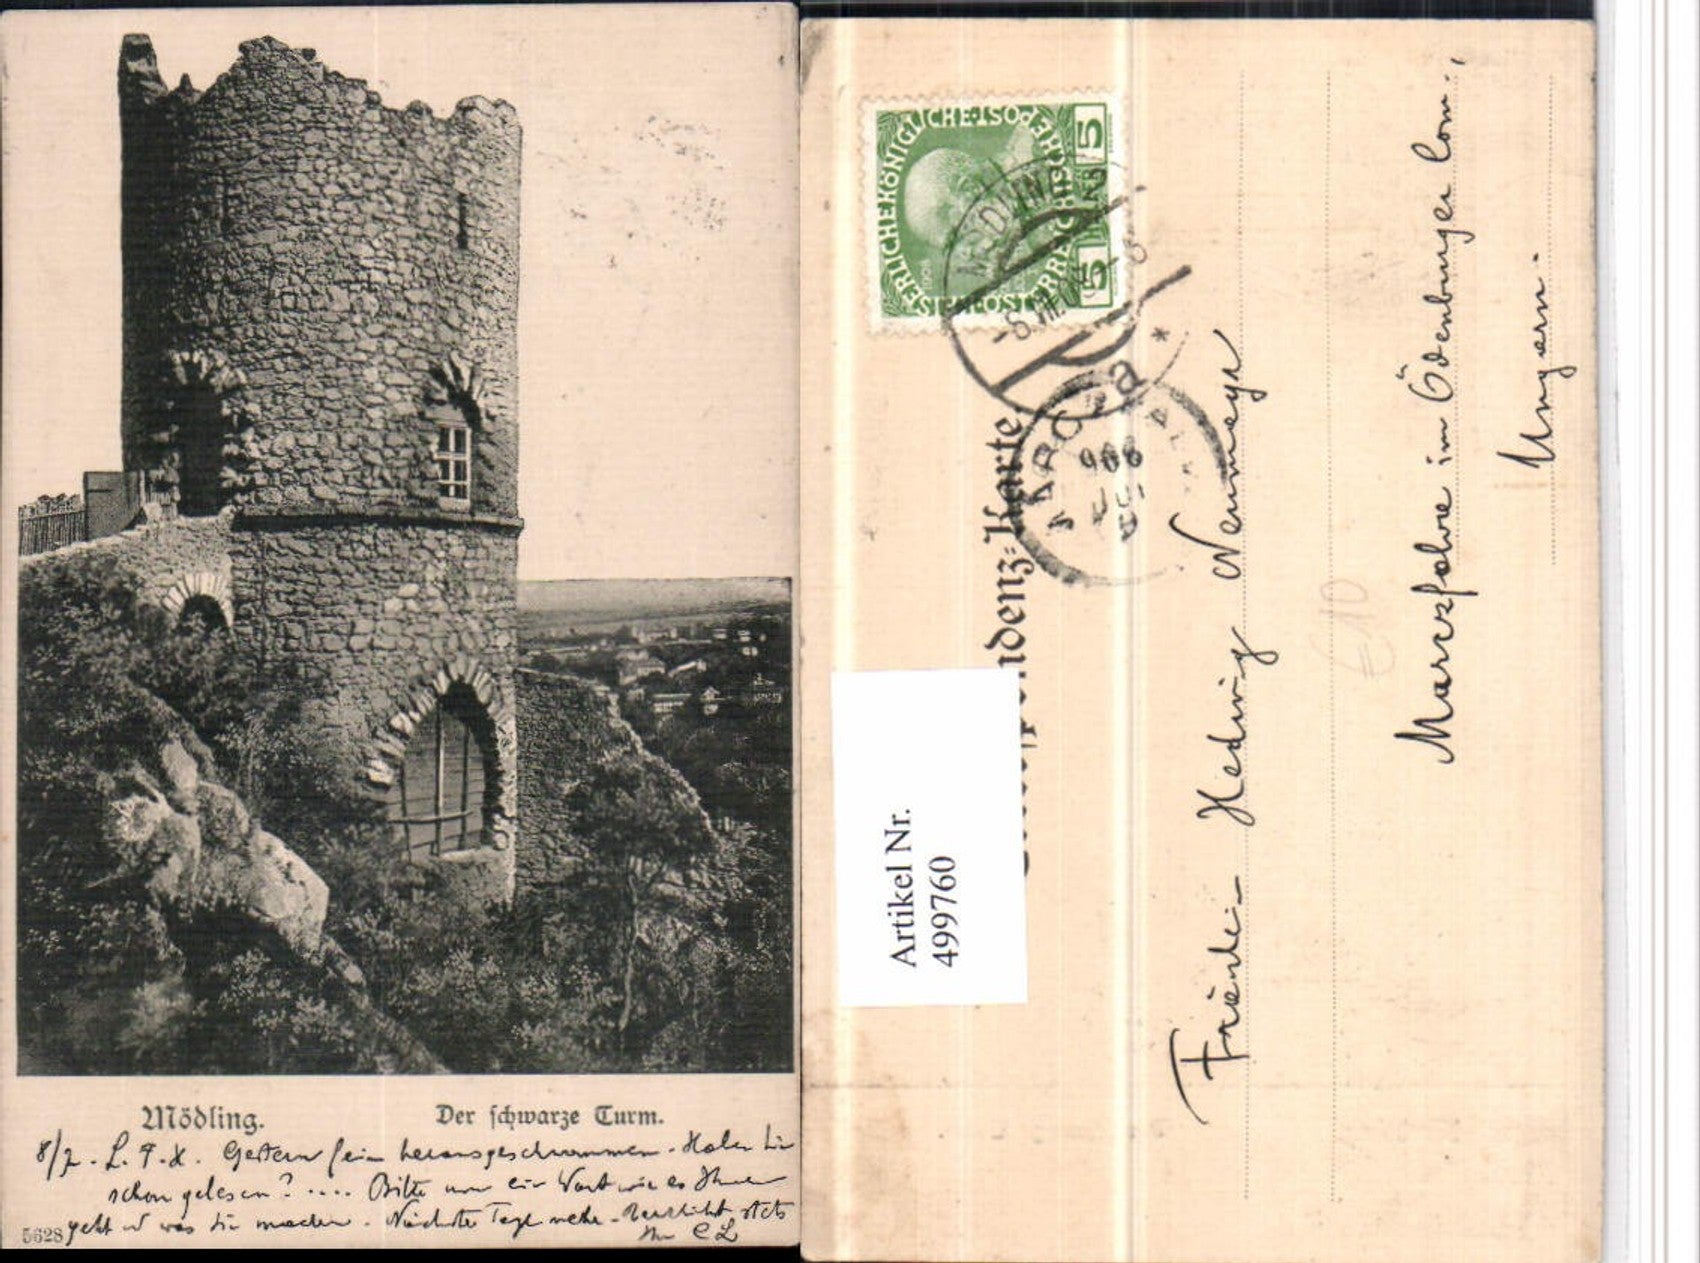 Mödling.
Der schwarze Turm.
8/7. L. F. H. Gestern fein herausgeschwommen. Haben Sie
schon gelesen? .... Bitte nur ein Wort wie es Ihnen
geht u was Sie machen. Nächster Tage mehr. Herzlichst stets
Ihr CL
5628
KAISERLICHE KÖNIGLICHE ÖSTERREICHISCHE POST
5 5
1908
MÖDLING
a *
908
Korrespondenz-Karte.
Artikel Nr.
499760
Hedwig Neumeyr
£10
Marczfalva im Ödenburger Com.,
Ungarn.